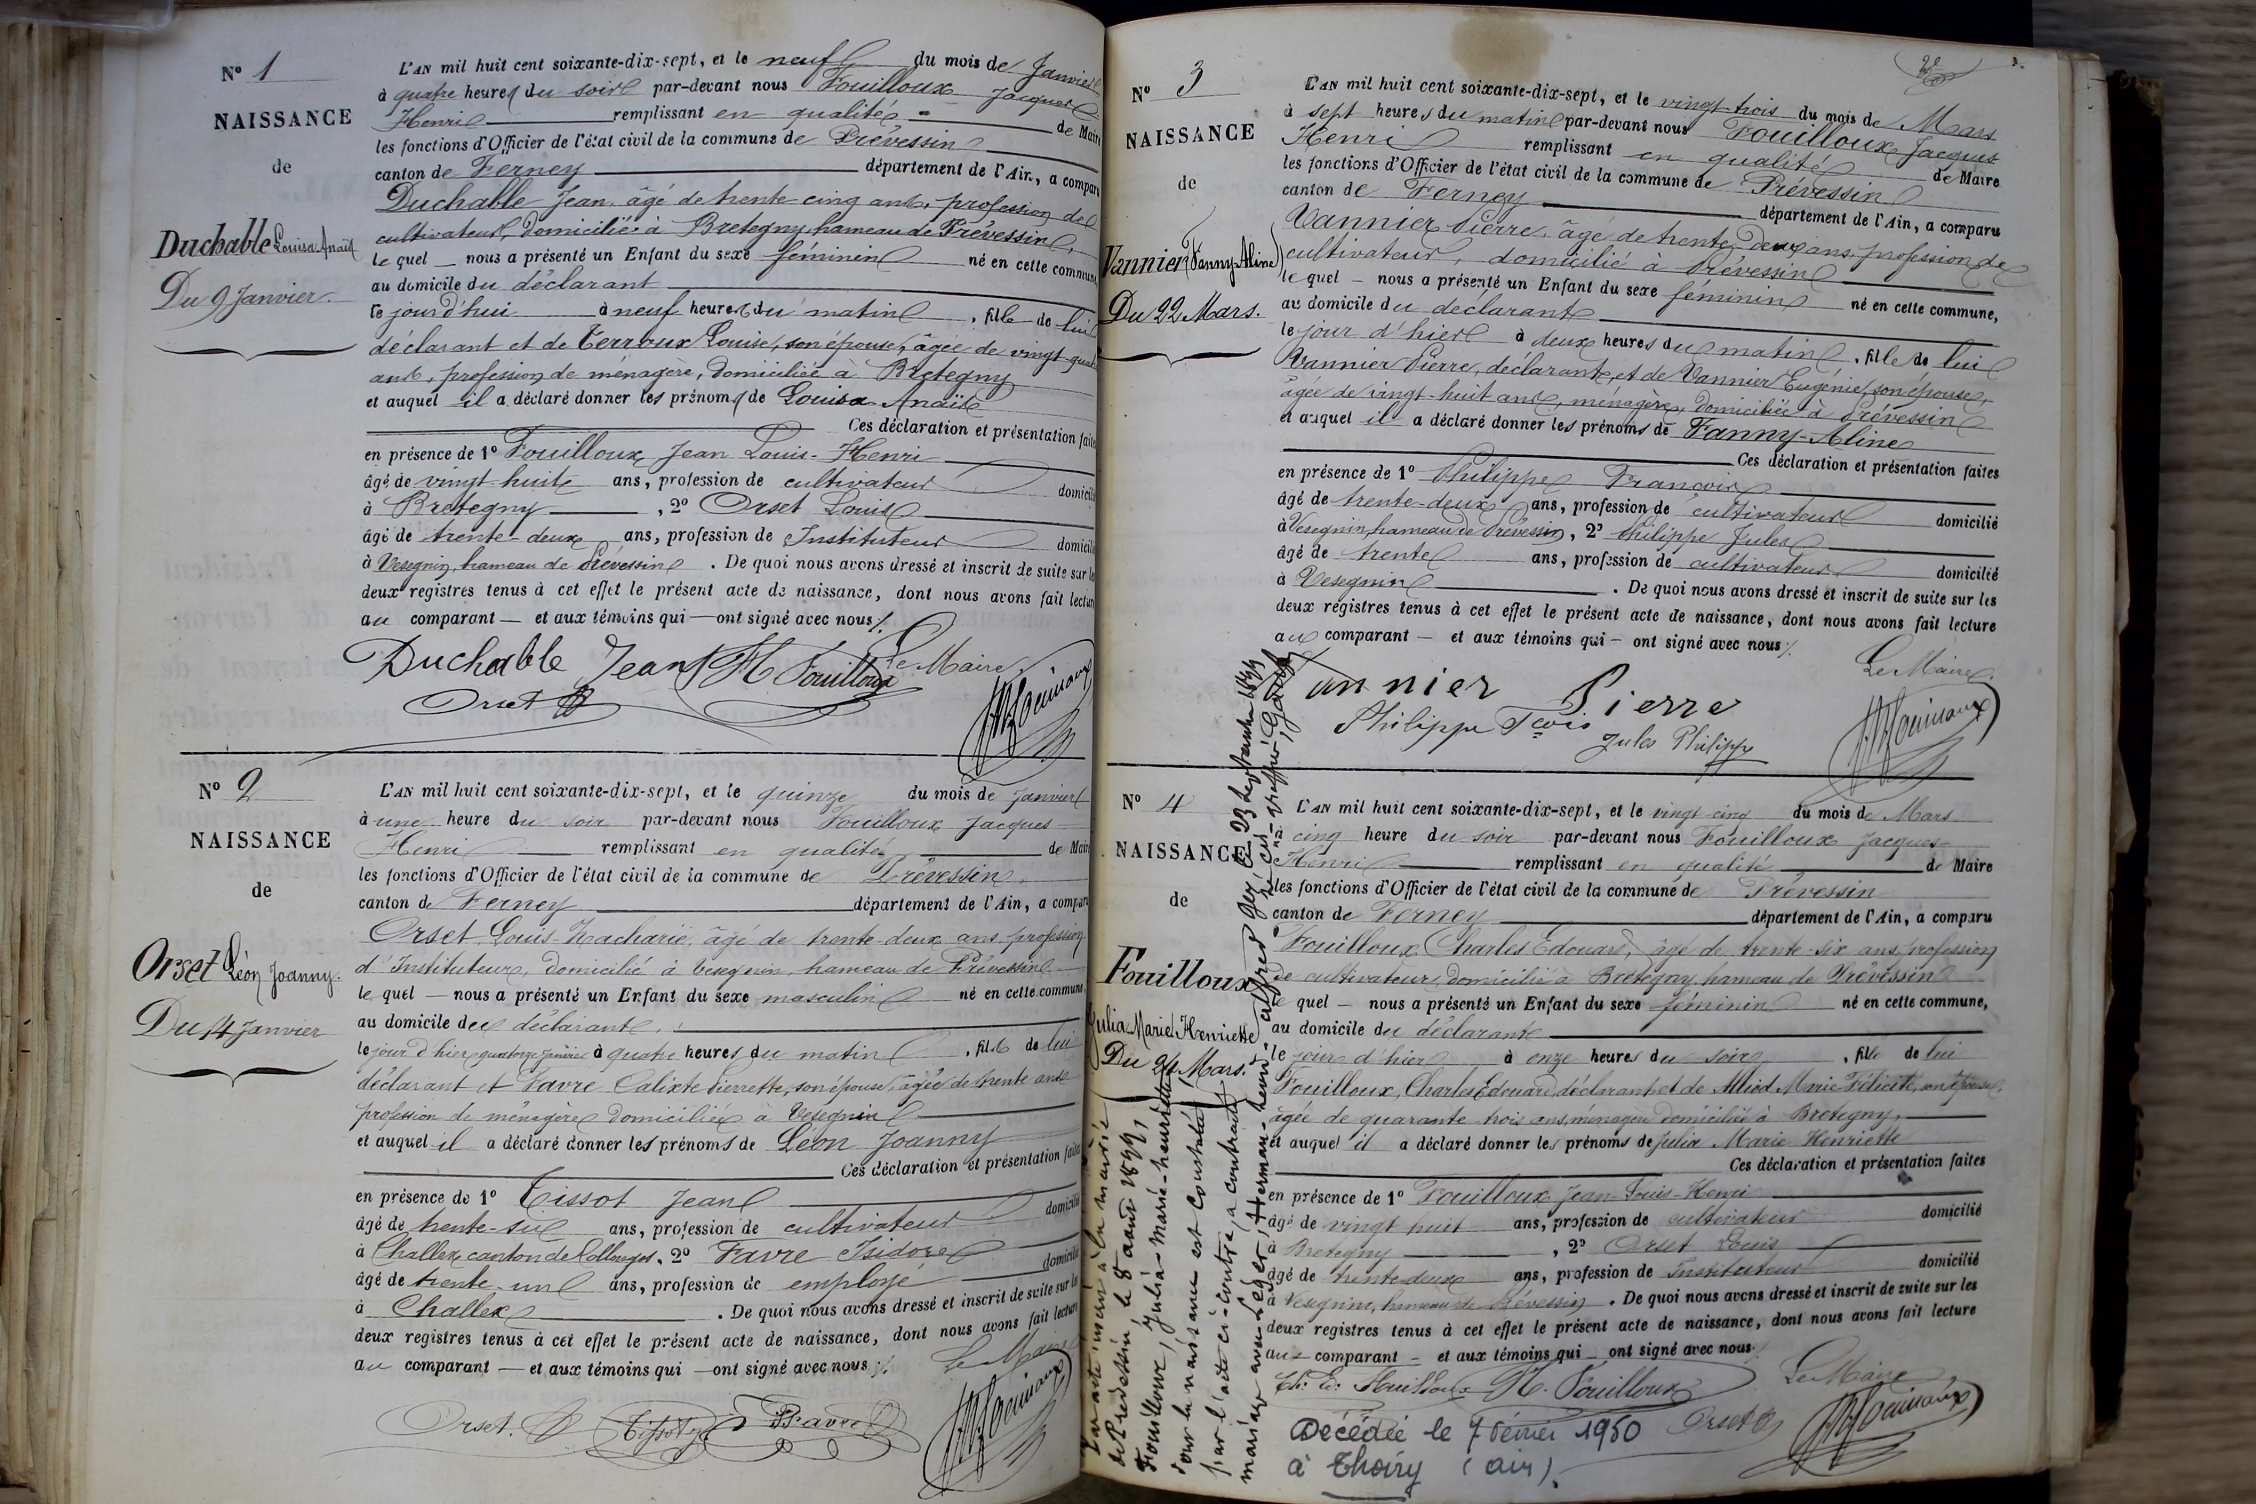 Nº 1
NAISSANCE
de
Duchable Louisa Anaïs
Du 9 Janvier.
L'AN mil huit cent soixante-dix-sept, et le neuf du mois de Janvier
à quatre heures du soir par-devant nous Fouilloux Jacques
Henri remplissant en qualité de Maire
les fonctions d'Officier de l'état civil de la commune de Prévessin
canton de Ferney département de l'Ain, a comparu
Duchable Jean, âgé de trente-cinq ans, profession de
cultivateur, domicilié à Bretegny hameau de Prévessin,
le quel nous a présenté un Enfant du sexe féminin né en cette commune,
au domicile du déclarant
le jour d'hui à neuf heures du matin, fille de lui
déclarant et de Terroux Louise, son épouse, âgée de vingt-quatre
ans, profession de ménagère, domiciliée à Bretegny
et auquel il a déclaré donner les prénoms de Louisa Anaïs
Ces déclaration et présentation faites
en présence de 1º Fouilloux Jean Louis-Henri
âgé de vingt-huit ans, profession de cultivateur domicilié
à Bretegny, 2º Orset Louis
âgé de trente-deux ans, profession de Instituteur domicilié
à Vesegnin, hameau de Prévessin. De quoi nous avons dressé et inscrit de suite sur les
deux registres tenus à cet effet le présent acte de naissance, dont nous avons fait lecture
au comparant — et aux témoins qui — ont signé avec nous ./.
Duchable Jean H Fouilloux Le Maire
Orset
Nº 2
NAISSANCE
de
Orset Léon Joanny.
Du 14 Janvier
L'AN mil huit cent soixante-dix-sept, et le quinze du mois de Janvier
à une heure du soir par-devant nous Fouilloux Jacques
Henri remplissant en qualité de Maire
les fonctions d'Officier de l'état civil de la commune de Prévessin
canton de Ferney département de l'Ain, a comparu
Orset Louis-Zacharie, âgé de trente-deux ans, profession
d'Instituteur, domicilié à Vesegnin, hameau de Prévessin
le quel — nous a présenté un Enfant du sexe masculin né en cette commune
au domicile du déclarant,
le jour d'hier quatorze Janvier à quatre heures du matin, fils de lui
déclarant et Favre Calixte Pierrette, son épouse, âgée de trente ans
profession de ménagère domiciliée à Vesegnin
et auquel il a déclaré donner les prénoms de Léon Joanny
Ces déclaration et présentation faites
en présence de 1º Tissot Jean
âgé de trente-six ans, profession de cultivateur domicilié
à Challex canton de Collonges, 2º Favre Isidore
âgé de trente-un ans, profession de employé domicilié
à Challex. De quoi nous avons dressé et inscrit de suite sur les
deux registres tenus à cet effet le présent acte de naissance, dont nous avons fait lecture
au comparant — et aux témoins qui — ont signé avec nous ./.
Le Maire
Orset. Tissot J Favre
2e
Nº 3
NAISSANCE
de
Vannier (Fanny-Aline)
Du 22 Mars.
L'AN mil huit cent soixante-dix-sept, et le vingt-trois du mois de Mars
à sept heures du matin par-devant nous Fouilloux Jacques
Henri remplissant en qualité de Maire
les fonctions d'Officier de l'état civil de la commune de Prévessin
canton de Ferney département de l'Ain, a comparu
Vannier Pierre, âgé de trente-deux ans, profession de
cultivateur, domicilié à Prévessin
le quel — nous a présenté un Enfant du sexe féminin né en cette commune,
au domicile du déclarant
le jour d'hier à deux heures du matin, fille de lui
Vannier Pierre, déclarant, et de Vannier Eugénie, son épouse,
âgée de vingt-huit ans, ménagère, domiciliée à Prévessin
et auquel il a déclaré donner les prénoms de Fanny-Aline
Ces déclaration et présentation faites
en présence de 1º Philippe François
âgé de trente-deux ans, profession de cultivateur domicilié
à Vesegnin, hameau de Prévessin, 2º Philippe Jules
âgé de trente ans, profession de cultivateur domicilié
à Vesegnin. De quoi nous avons dressé et inscrit de suite sur les
deux registres tenus à cet effet le présent acte de naissance, dont nous avons fait lecture
au comparant — et aux témoins qui — ont signé avec nous ./.
Le Maire
Vannier Pierre
Philippe Fçois
Jules Philippe
Nº 4
NAISSANCE
de
Fouilloux
Julia-Marie-Henriette
Du 24 Mars.
L'AN mil huit cent soixante-dix-sept, et le vingt-cinq du mois de Mars
à cinq heure du soir par-devant nous Fouilloux Jacques
Henri remplissant en qualité de Maire
les fonctions d'Officier de l'état civil de la commune de Prévessin
canton de Ferney département de l'Ain, a comparu
Fouilloux Charles Edouard, âgé de trente-six ans, profession
de cultivateur, domicilié à Bretegny, hameau de Prévessin
le quel — nous a présenté un Enfant du sexe féminin né en cette commune,
au domicile du déclarant
le jour d'hier à onze heures du soir, fille de lui
Fouilloux, Charles Edouard, déclarant, et de Alliod Marie Félicité, son épouse,
âgée de quarante trois ans, ménagère domiciliée à Bretegny,
et auquel il a déclaré donner les prénoms de Julia Marie Henriette
Ces déclaration et présentation faites
en présence de 1º Fouilloux Jean-Louis-Henri
âgé de vingt huit ans, profession de cultivateur domicilié
à Bretegny, 2º Orset Louis
âgé de trente-deux ans, profession de Instituteur domicilié
à Vesegnin, hameau de Prévessin. De quoi nous avons dressé et inscrit de suite sur les
deux registres tenus à cet effet le présent acte de naissance, dont nous avons fait lecture
au comparant — et aux témoins qui — ont signé avec nous ./.
Ch. Ed. Fouilloux H. Fouilloux Le Maire
Orset
Décédée le 7 février 1950
à Thoiry (Ain).
Par acte inscrit à la mairie
de Prévessin, le 8 août 1899,
Fouilloux, Julia-Marie-Henriette,
dont la naissance est constatée
par l'acte ci-contre, a contracté
mariage avec Léger, Herman-henri-alfred